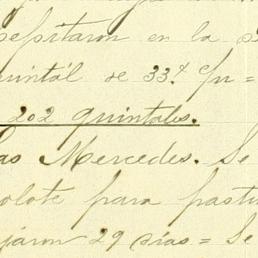 epsitaron en la s
quintál de 33.⁴ c/u =
202 quintales.
Las Mercedes. Se
olote para pastu
jaron 29 días = Se